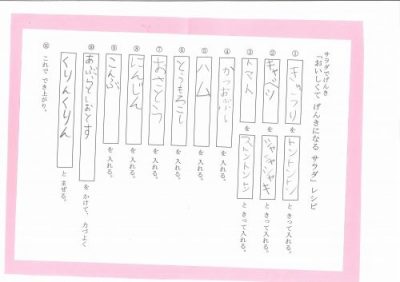 サラダでげんき
「おいしくて げんきになる サラダ」レシピ
① きゅうり を トントントン ときって入れる。
② キャベツ を シャシャシャキ ときって入れる。
③ トマト を ストントントン ときって入れる。
④ かつおぶし を入れる。
⑤ ハム を入れる。
⑥ とうもろこし を入れる。
⑦ おさとう を入れる。
⑧ にんじん を入れる。
⑨ こんぶ を入れる。
⑩ あぶらとしおとす をかけて、力づよく
くりんくりん とまぜる。
⑪ これで でき上がり。